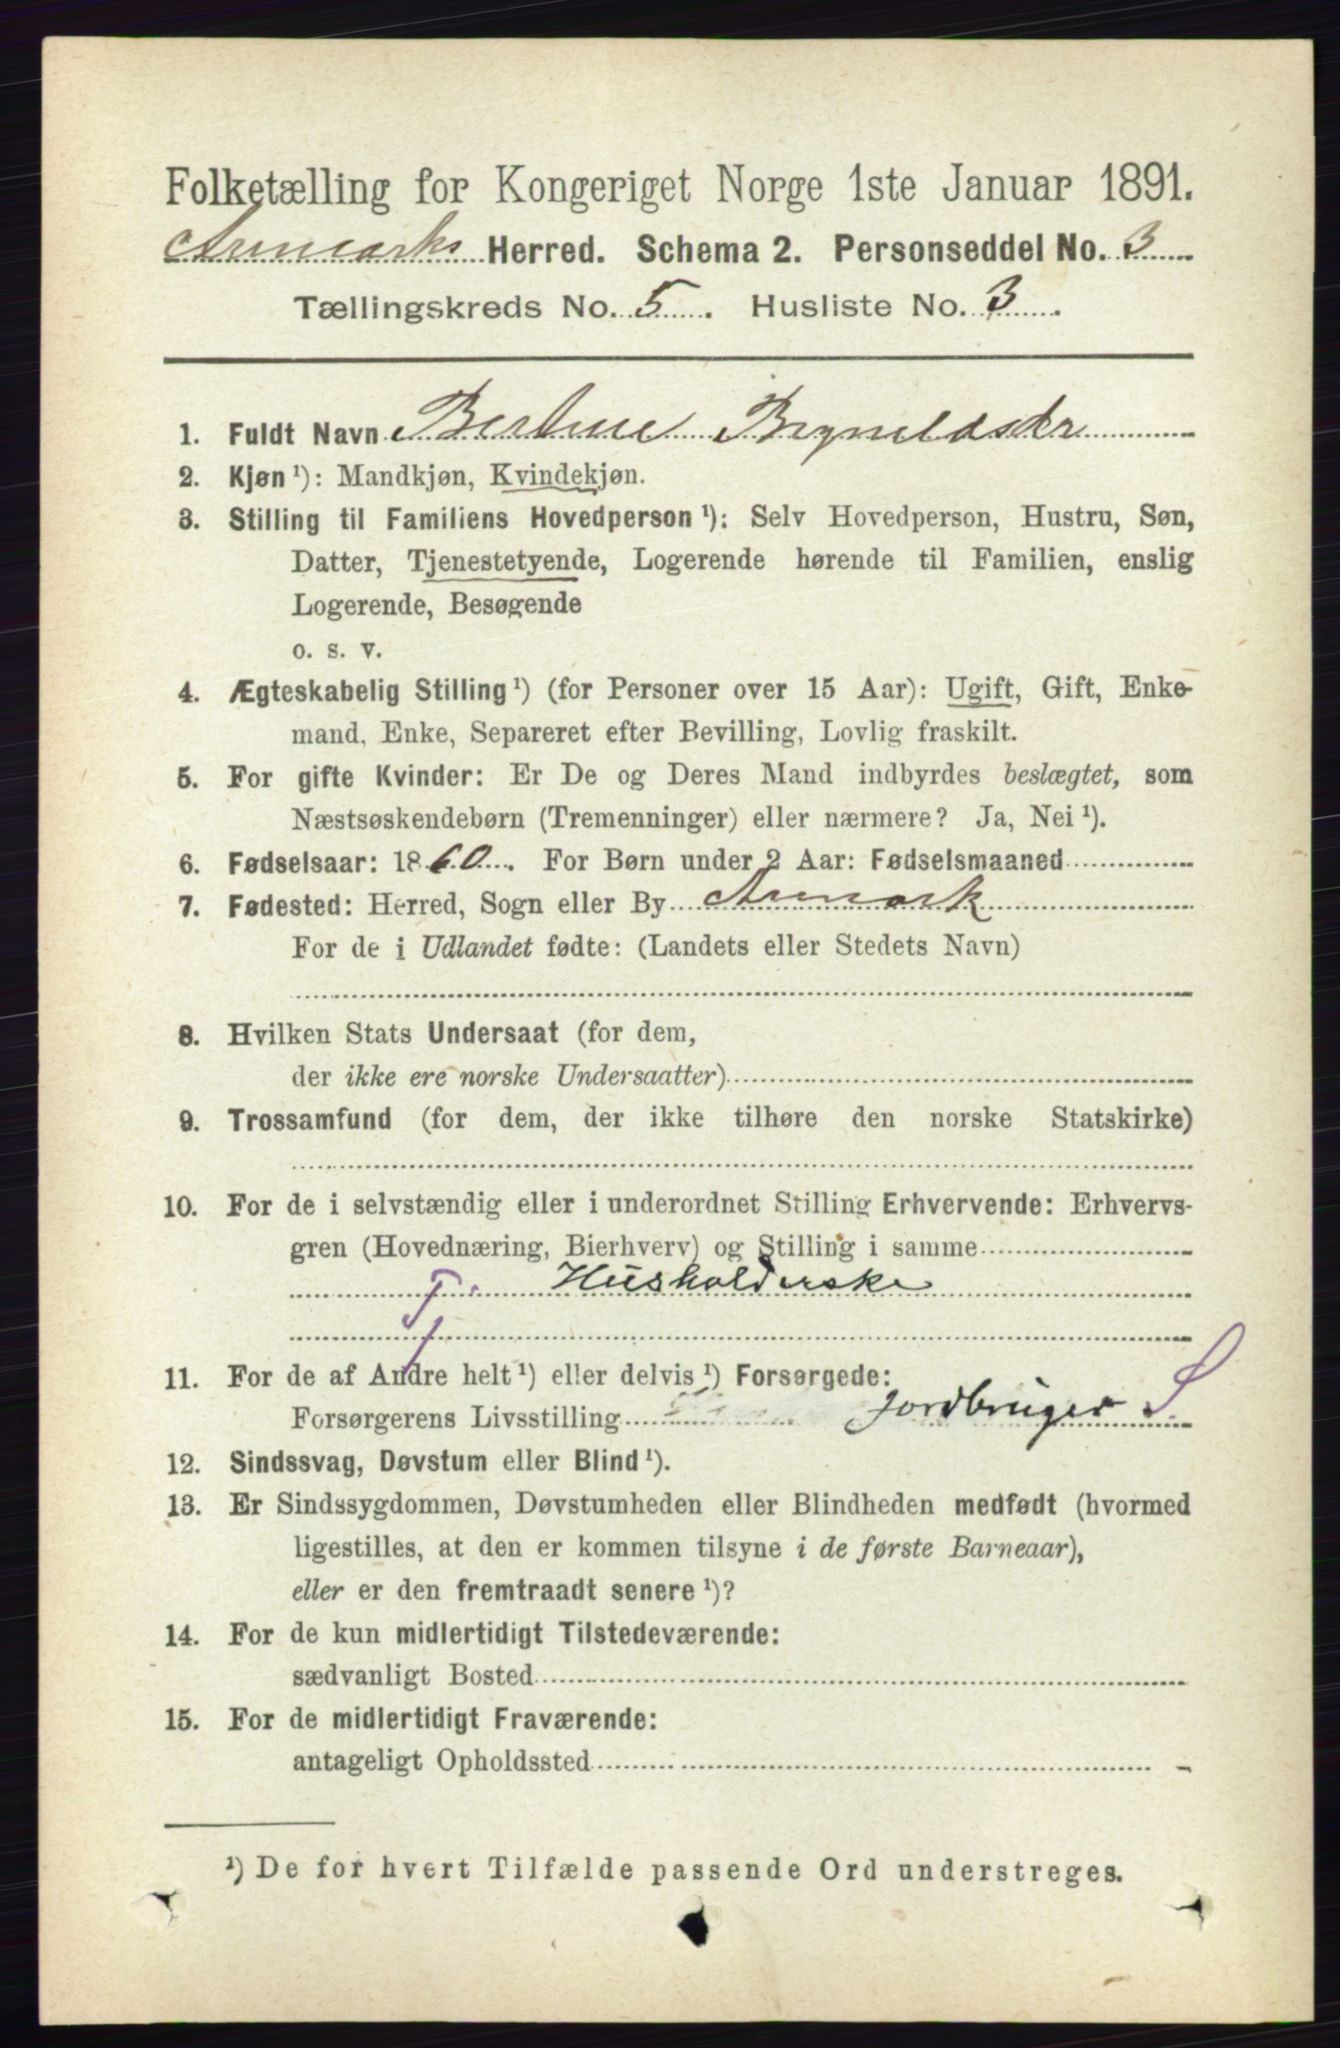 Folketælling for Kongeriget Norge 1ste Januar 1891.
Aremarks Herred. Schema 2. Personseddel No. 3
Tællingskreds No. 5. Husliste No. 3.
1. Fuldt Navn Bertine Brynildsdtr
2. Kjøn ¹): Mandkjøn, Kvindekjøn.
3. Stilling til Familiens Hovedperson ¹): Selv Hovedperson, Hustru, Søn,
Datter, Tjenestetyende, Logerende hørende til Familien, enslig
Logerende, Besøgende
o. s. v.
4. Ægteskabelig Stilling ¹) (for Personer over 15 Aar): Ugift, Gift, Enke-
mand, Enke, Separeret efter Bevilling, Lovlig fraskilt.
5. For gifte Kvinder: Er De og Deres Mand indbyrdes beslægtet, som
Næstsøskendebørn (Tremenninger) eller nærmere? Ja, Nei ¹).
6. Fødselsaar: 1860. For Børn under 2 Aar: Fødselsmaaned
7. Fødested: Herred, Sogn eller By Aremark
For de i Udlandet fødte: (Landets eller Stedets Navn)
8. Hvilken Stats Undersaat (for dem,
der ikke ere norske Undersaatter)
9. Trossamfund (for dem, der ikke tilhøre den norske Statskirke)
10. For de i selvstændig eller i underordnet Stilling Erhvervende: Erhvervs-
gren (Hovednæring, Bierhverv) og Stilling i samme
T. Husholderske
11. For de af Andre helt ¹) eller delvis ¹) Forsørgede:
Forsørgerens Livsstilling Jordbruger S.
12. Sindssvag, Døvstum eller Blind ¹).
13. Er Sindssygdommen, Døvstumheden eller Blindheden medfødt (hvormed
ligestilles, at den er kommen tilsyne i de første Barneaar),
eller er den fremtraadt senere ¹)?
14. For de kun midlertidigt Tilstedeværende:
sædvanligt Bosted
15. For de midlertidigt Fraværende:
antageligt Opholdssted
¹) De for hvert Tilfælde passende Ord understreges.